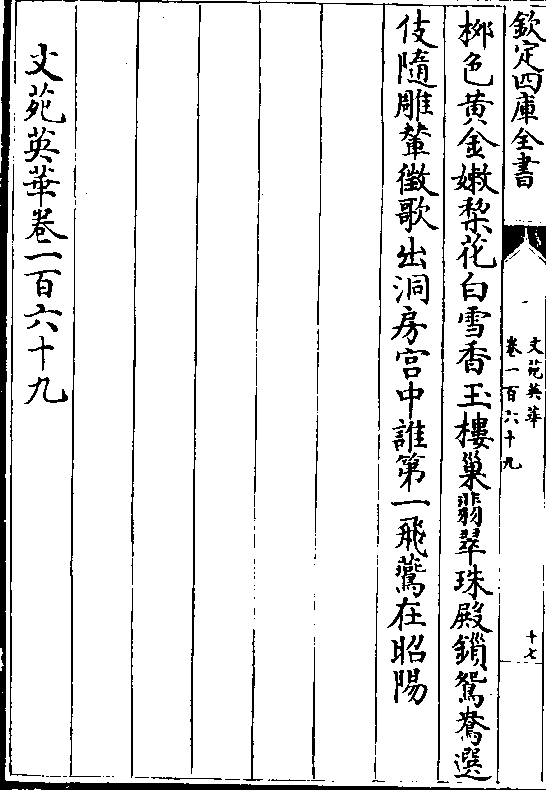 欽定四庫全書
文苑英華
卷一百六十九
十七
栁色黄金嫩棃花白雪香玉樓巢翡翠珠殿鎖鴛鴦選
伎隨雕輦徴歌出洞房宫中誰第一飛鷰在昭陽
文苑英華卷一百六十九